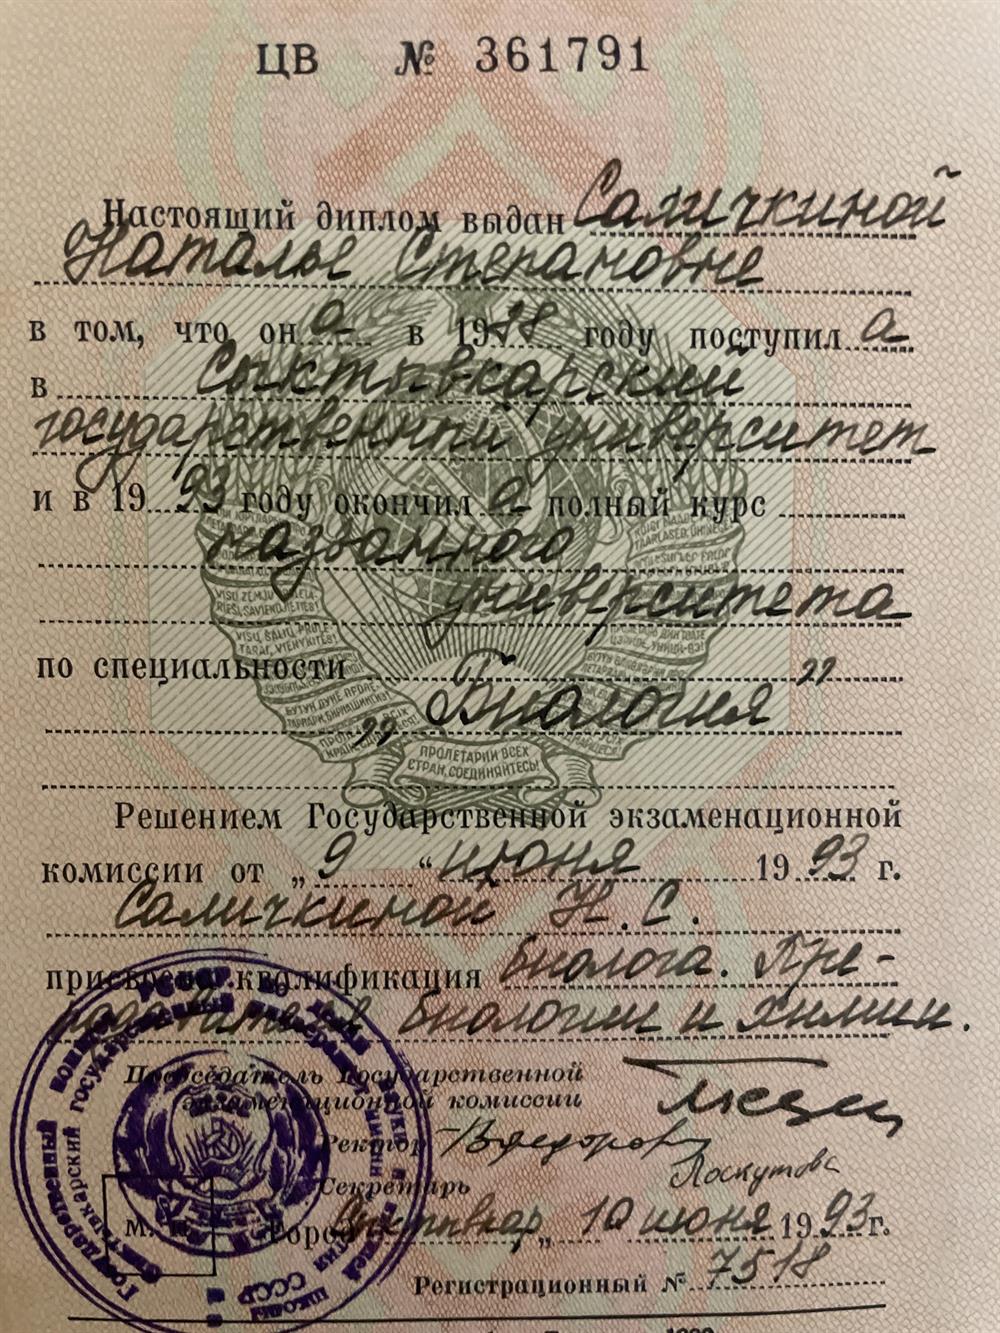 ЦВ № 361791
Настоящий диплом выдан Саличкиной
Наталье Степановне
в том, что он а в 1988 году поступил а
в Сыктывкарский
государственный университет
и в 1993 году окончил а полный курс
названного
университета
по специальности "
„Биология
Решением Государственной экзаменационной
комиссии от „9“ июня 1993 г.
Саличкиной Н.С.
присвоена квалификация биолога. Пре-
подавателя биологии и химии.
Председатель Государственной
экзаменационной комиссии
Ректор В Федорова
Секретарь Лоскутова
М. П. Город Сыктывкар, „10 июня 1993 г.
Регистрационный № 7518
ПРОЛЕТАРИИ ВСЕХ
СТРАН, СОЕДИНЯЙТЕСЬ!